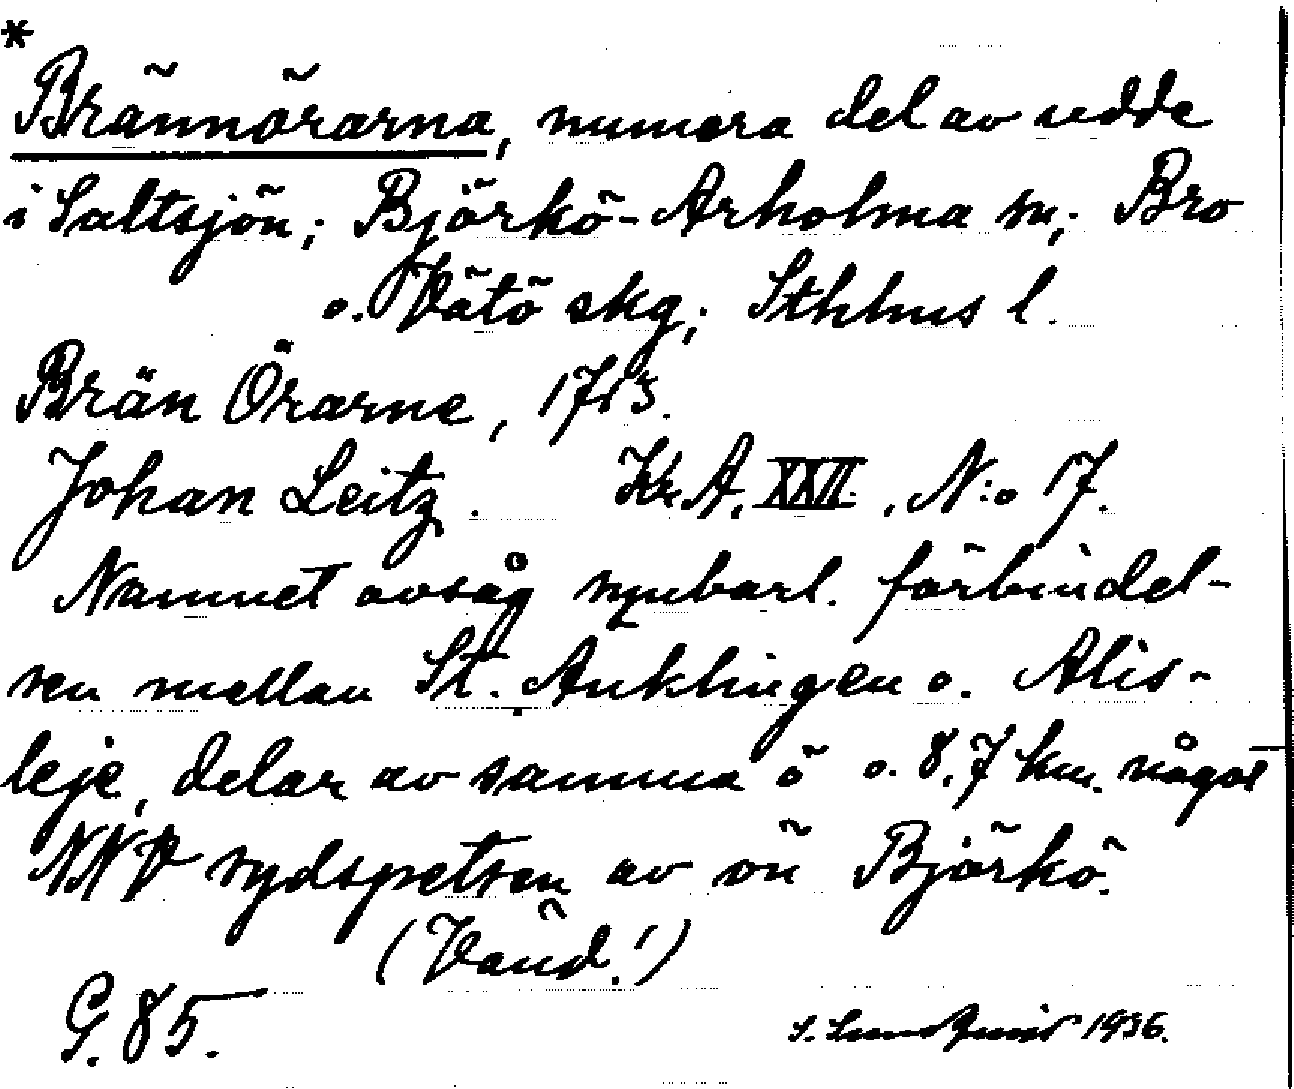 *
Brännörarna, numera del av udde
i Saltsjön; Björkö-Arholma sn; Bro
o. Vätö skg; Sthlms l.
Brän Örarne, 1713.
Johan Leitz. Kr. A. XXII. N:o 17.
Namnet avsåg synbarl. förbindel-
sen mellan St. Anklingen o. Alis-
leje, delar av samma ö o. 8,7 km. något
NNV sydspetsen av ön Björkö.
(Vänd!)
G. 85.
S. Lundqvist 1936.